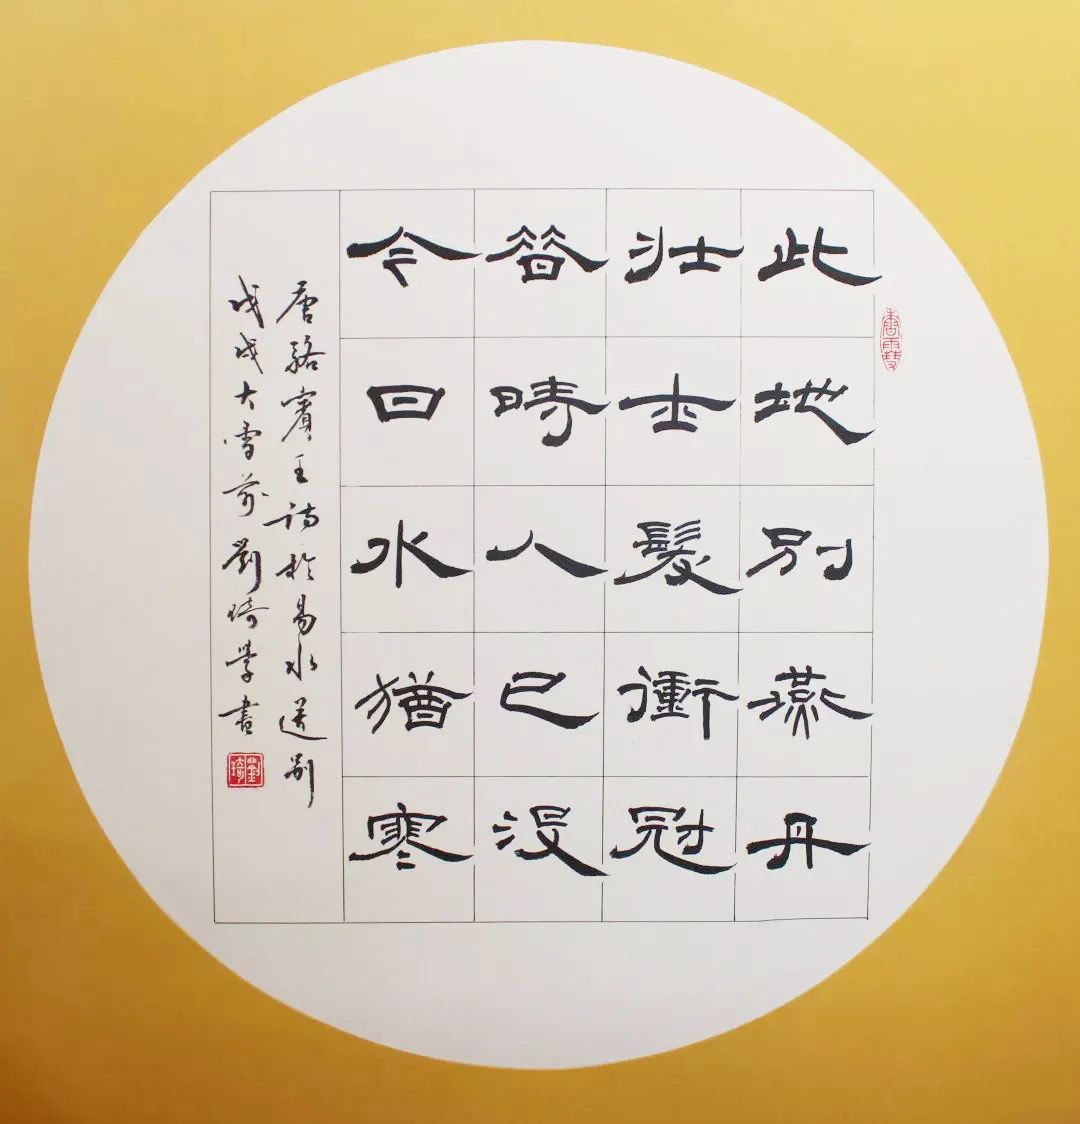 此地別燕丹
壯士髮衝冠
昔時人已没
今日水猶寒
唐駱賓王詩於易水送別
戊戌大雪前劉琦學書
劉琦